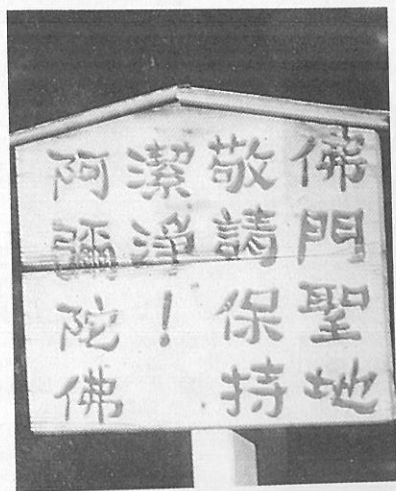 佛門聖地
敬請保持
潔淨！
阿彌陀佛